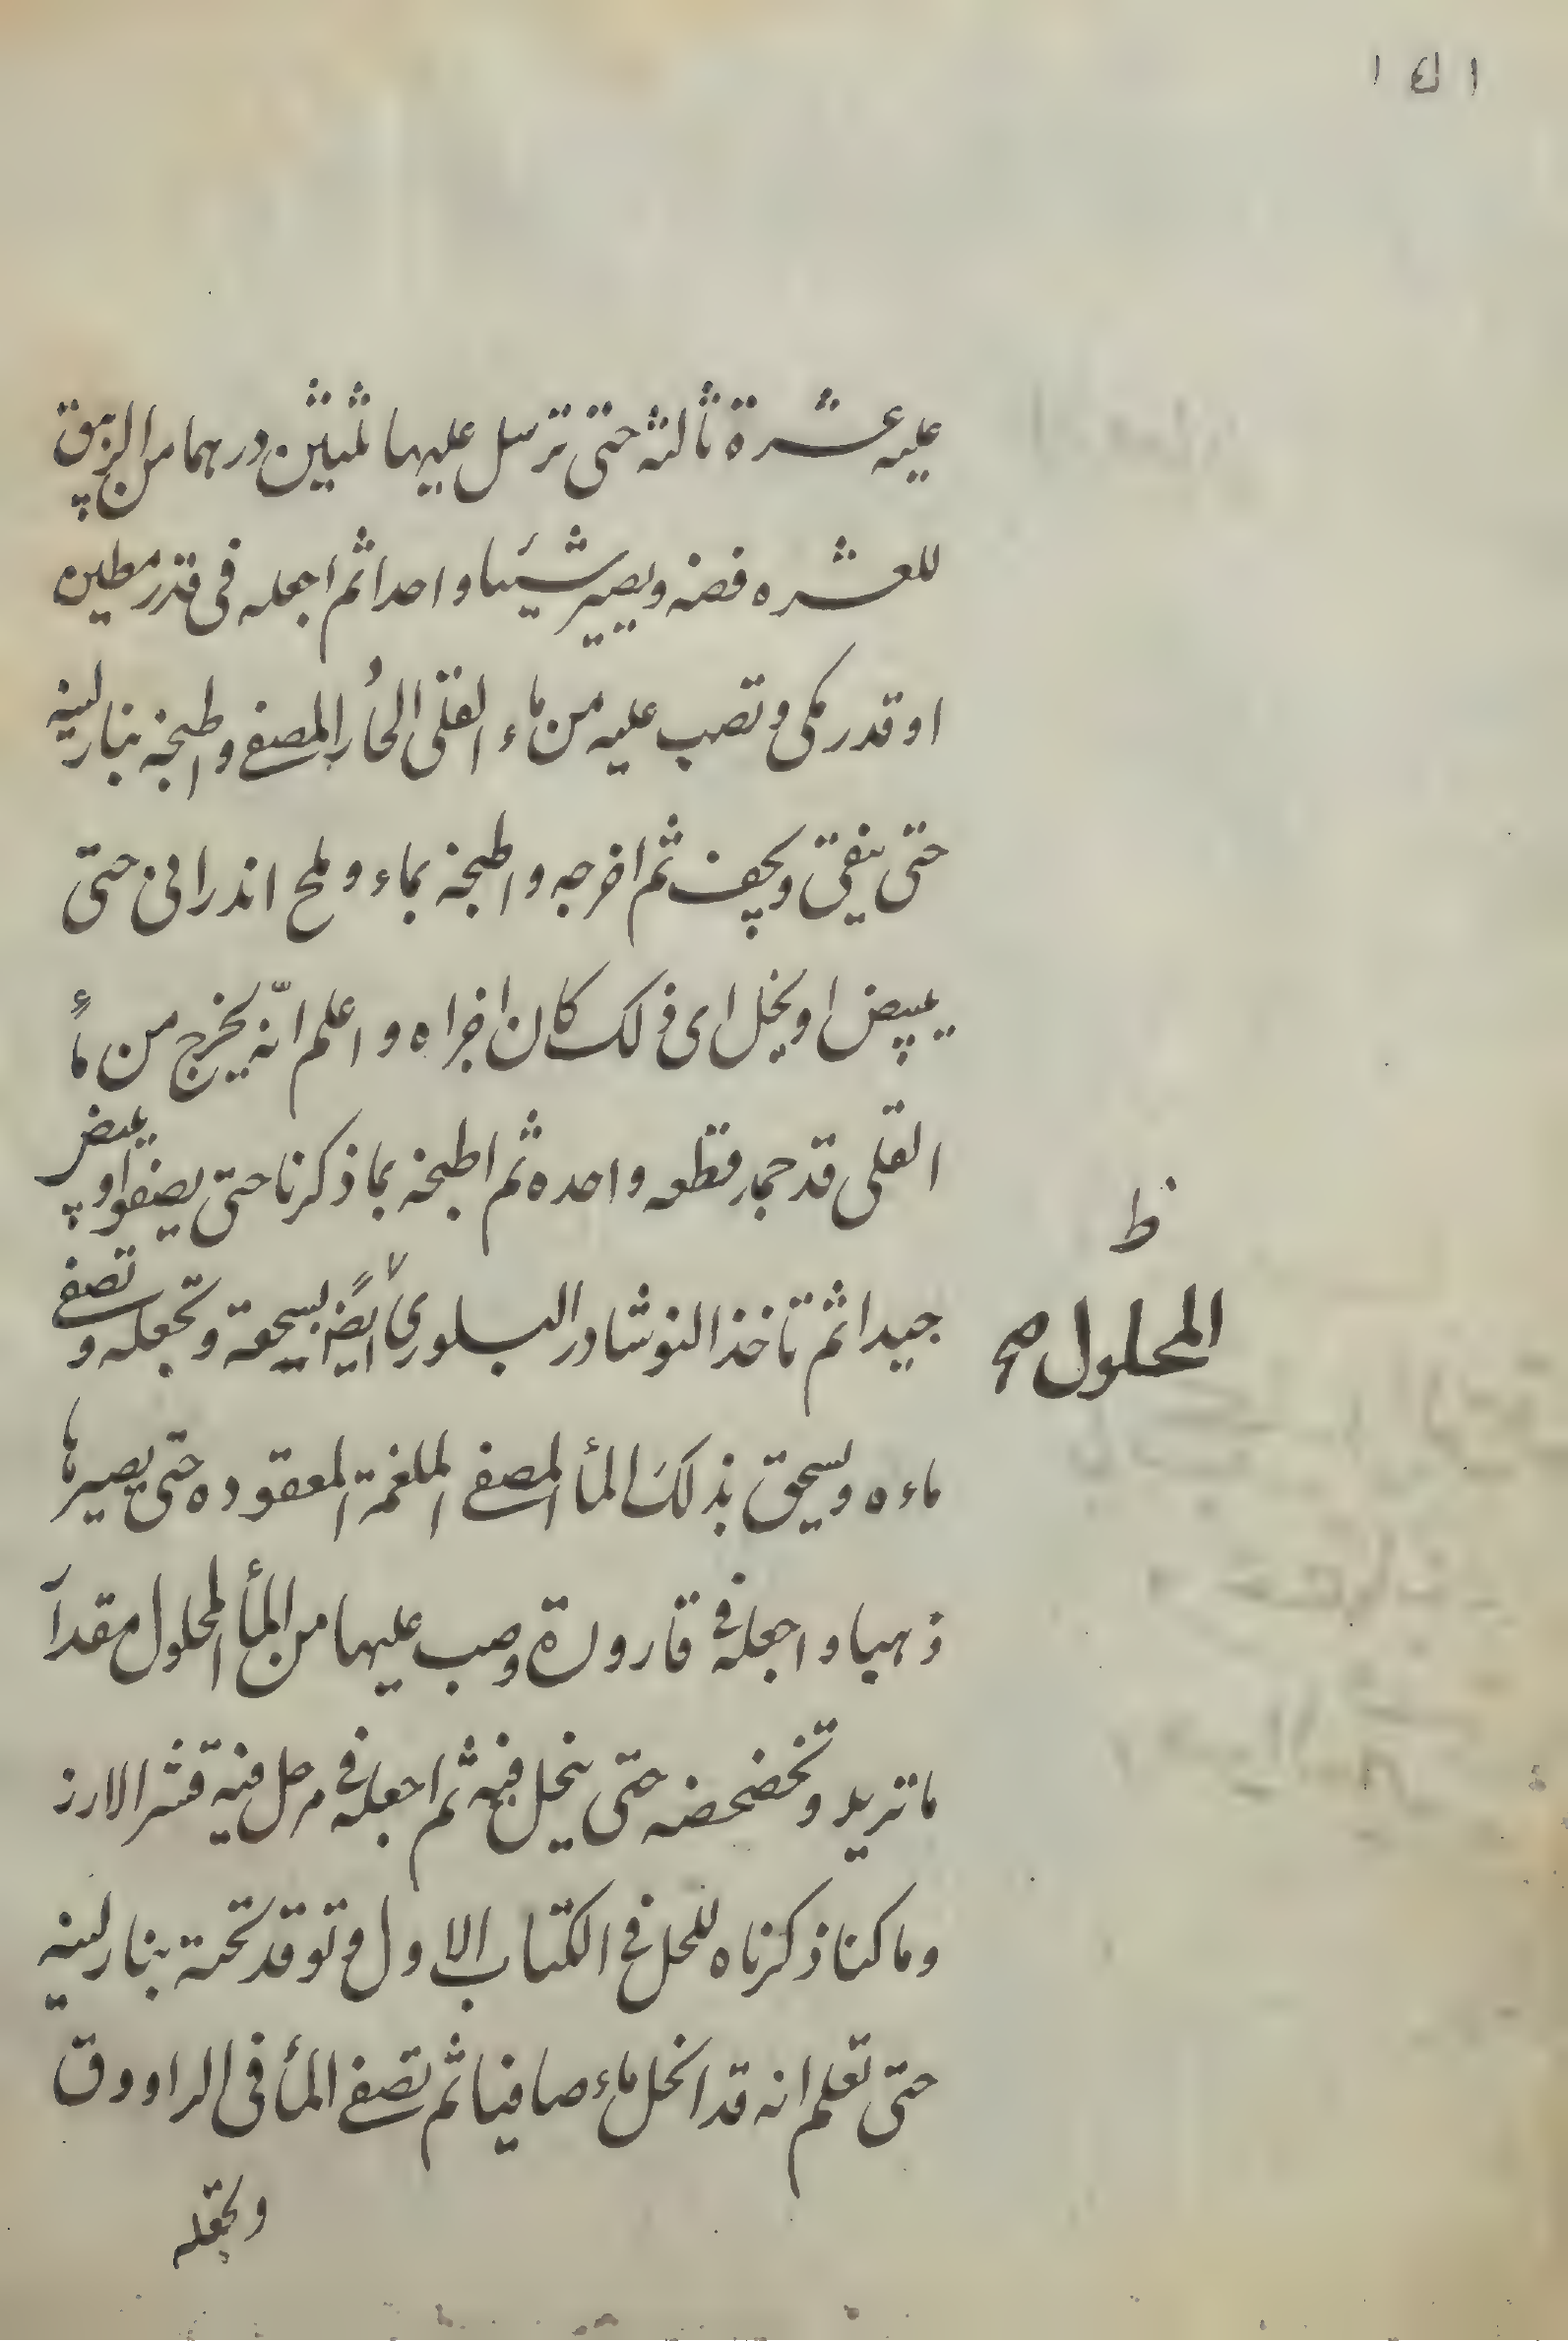 ١٤١
عليه عشرة ثالثه حتى ترسل عليها ثلثين درهما من الزيبق
للعشره فضه ويصير شيئا واحدا ثم اجعله فى قدر مطين
او قدر مكى وتصب عليه من ماء القلى الحار المصفى واطبخه بنار لينه
حتى ينقى ويجف ثم اخرجه واطبخه بماء وملح اندرانى حتى
يبيض او ينحل اى ذلك كان اجزاه واعلم انّه يخرج من ماء
القلى قد حمار قطعه واحده ثم اطبخه بما ذكرنا حتى يصفوا ويبيض
جيدا ثم تاخذ النوشادر البلورى ايضاً يسحقه وتجعله وتصفى
المحلول صح
ظ
ماءه ويسحق بذلك المأ المصفى الملغمة المعقوده حتى يصير هبا
ذهبا واجعله فى قارورة وصب عليها من المأ المحلول مقدا
ما تريد وتخضخضه حتى ينحل فيه ثم اجعله فى مرجل فيه قشر الارز
وما كنا ذكرناه للحل فى الكتاب الاول وتوقد تحته بنار لينه
حتى تعلم انه قد انحل ماء صافيا ثم تصفى المأ فى الراووق
وتجعله